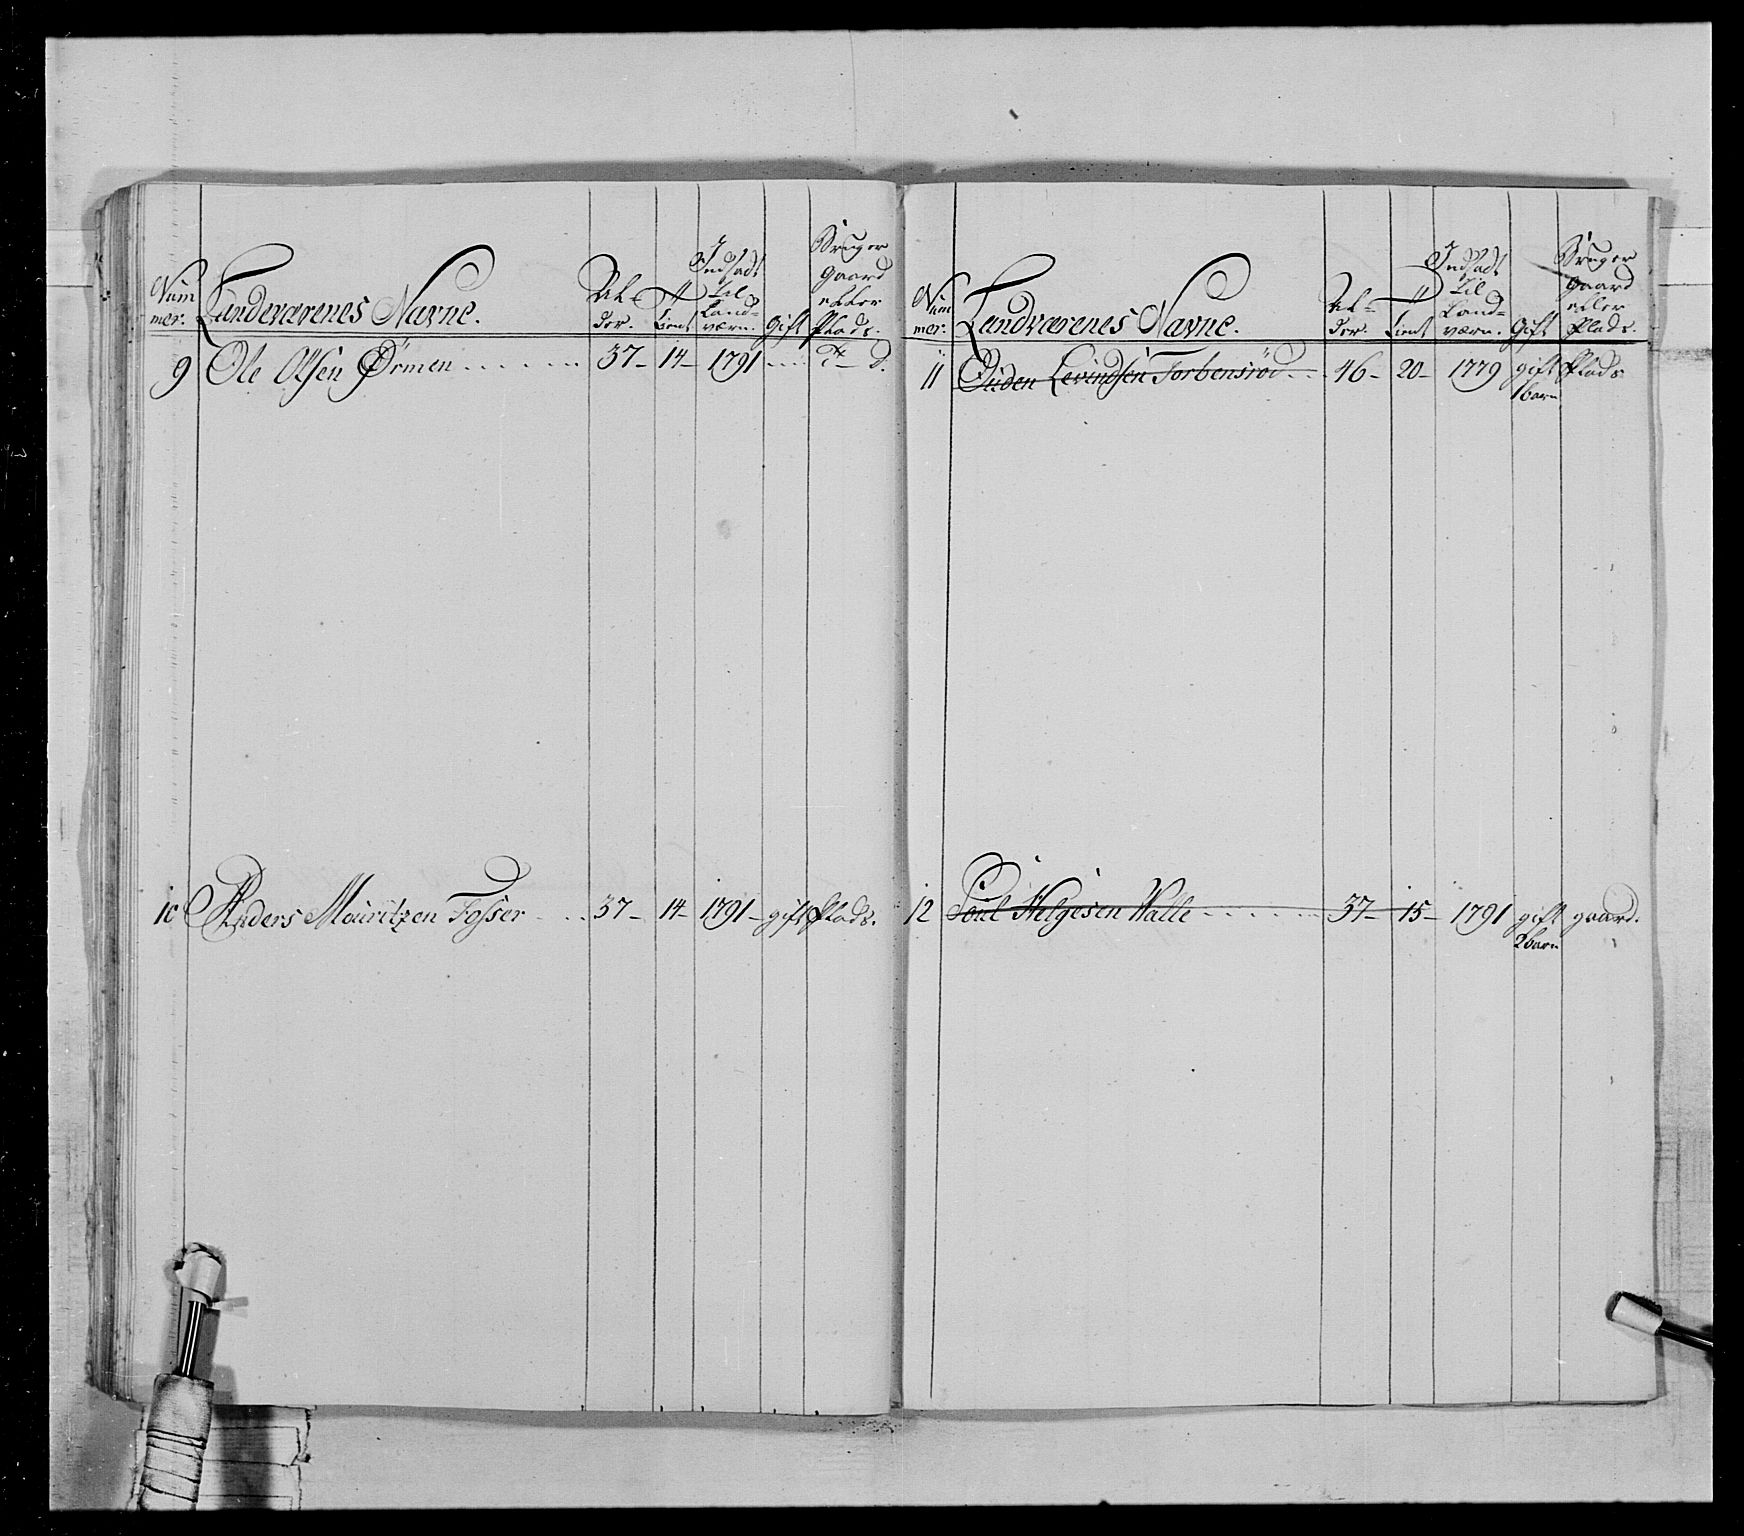 Num
mer.
Landeværenes Navne.
Al-
der.
tient
Indsadt
til
Land-
værn.
Gift
Bruger
gaard
eller
Plads.
9 Ole Olsen Ørmen . . . . . . 37 - 14 - 1791 . . .
10 Anders Mauritzen Fosser . . . 37 - 14 - 1791 - gift Plads.
Num
mer.
Landværenes Navne.
Al-
der.
tient
Indsadt
til
Land-
værn.
Gift
Bruger
gaard
eller
Plads.
11 Guden Levindsen Torbensröd . . . 46 - 20 - 1779 gift Plads
1 barn
12 Poul Helgesen Walle . . . . . . 37 - 15 - 1791 gift gaard.
2 barn